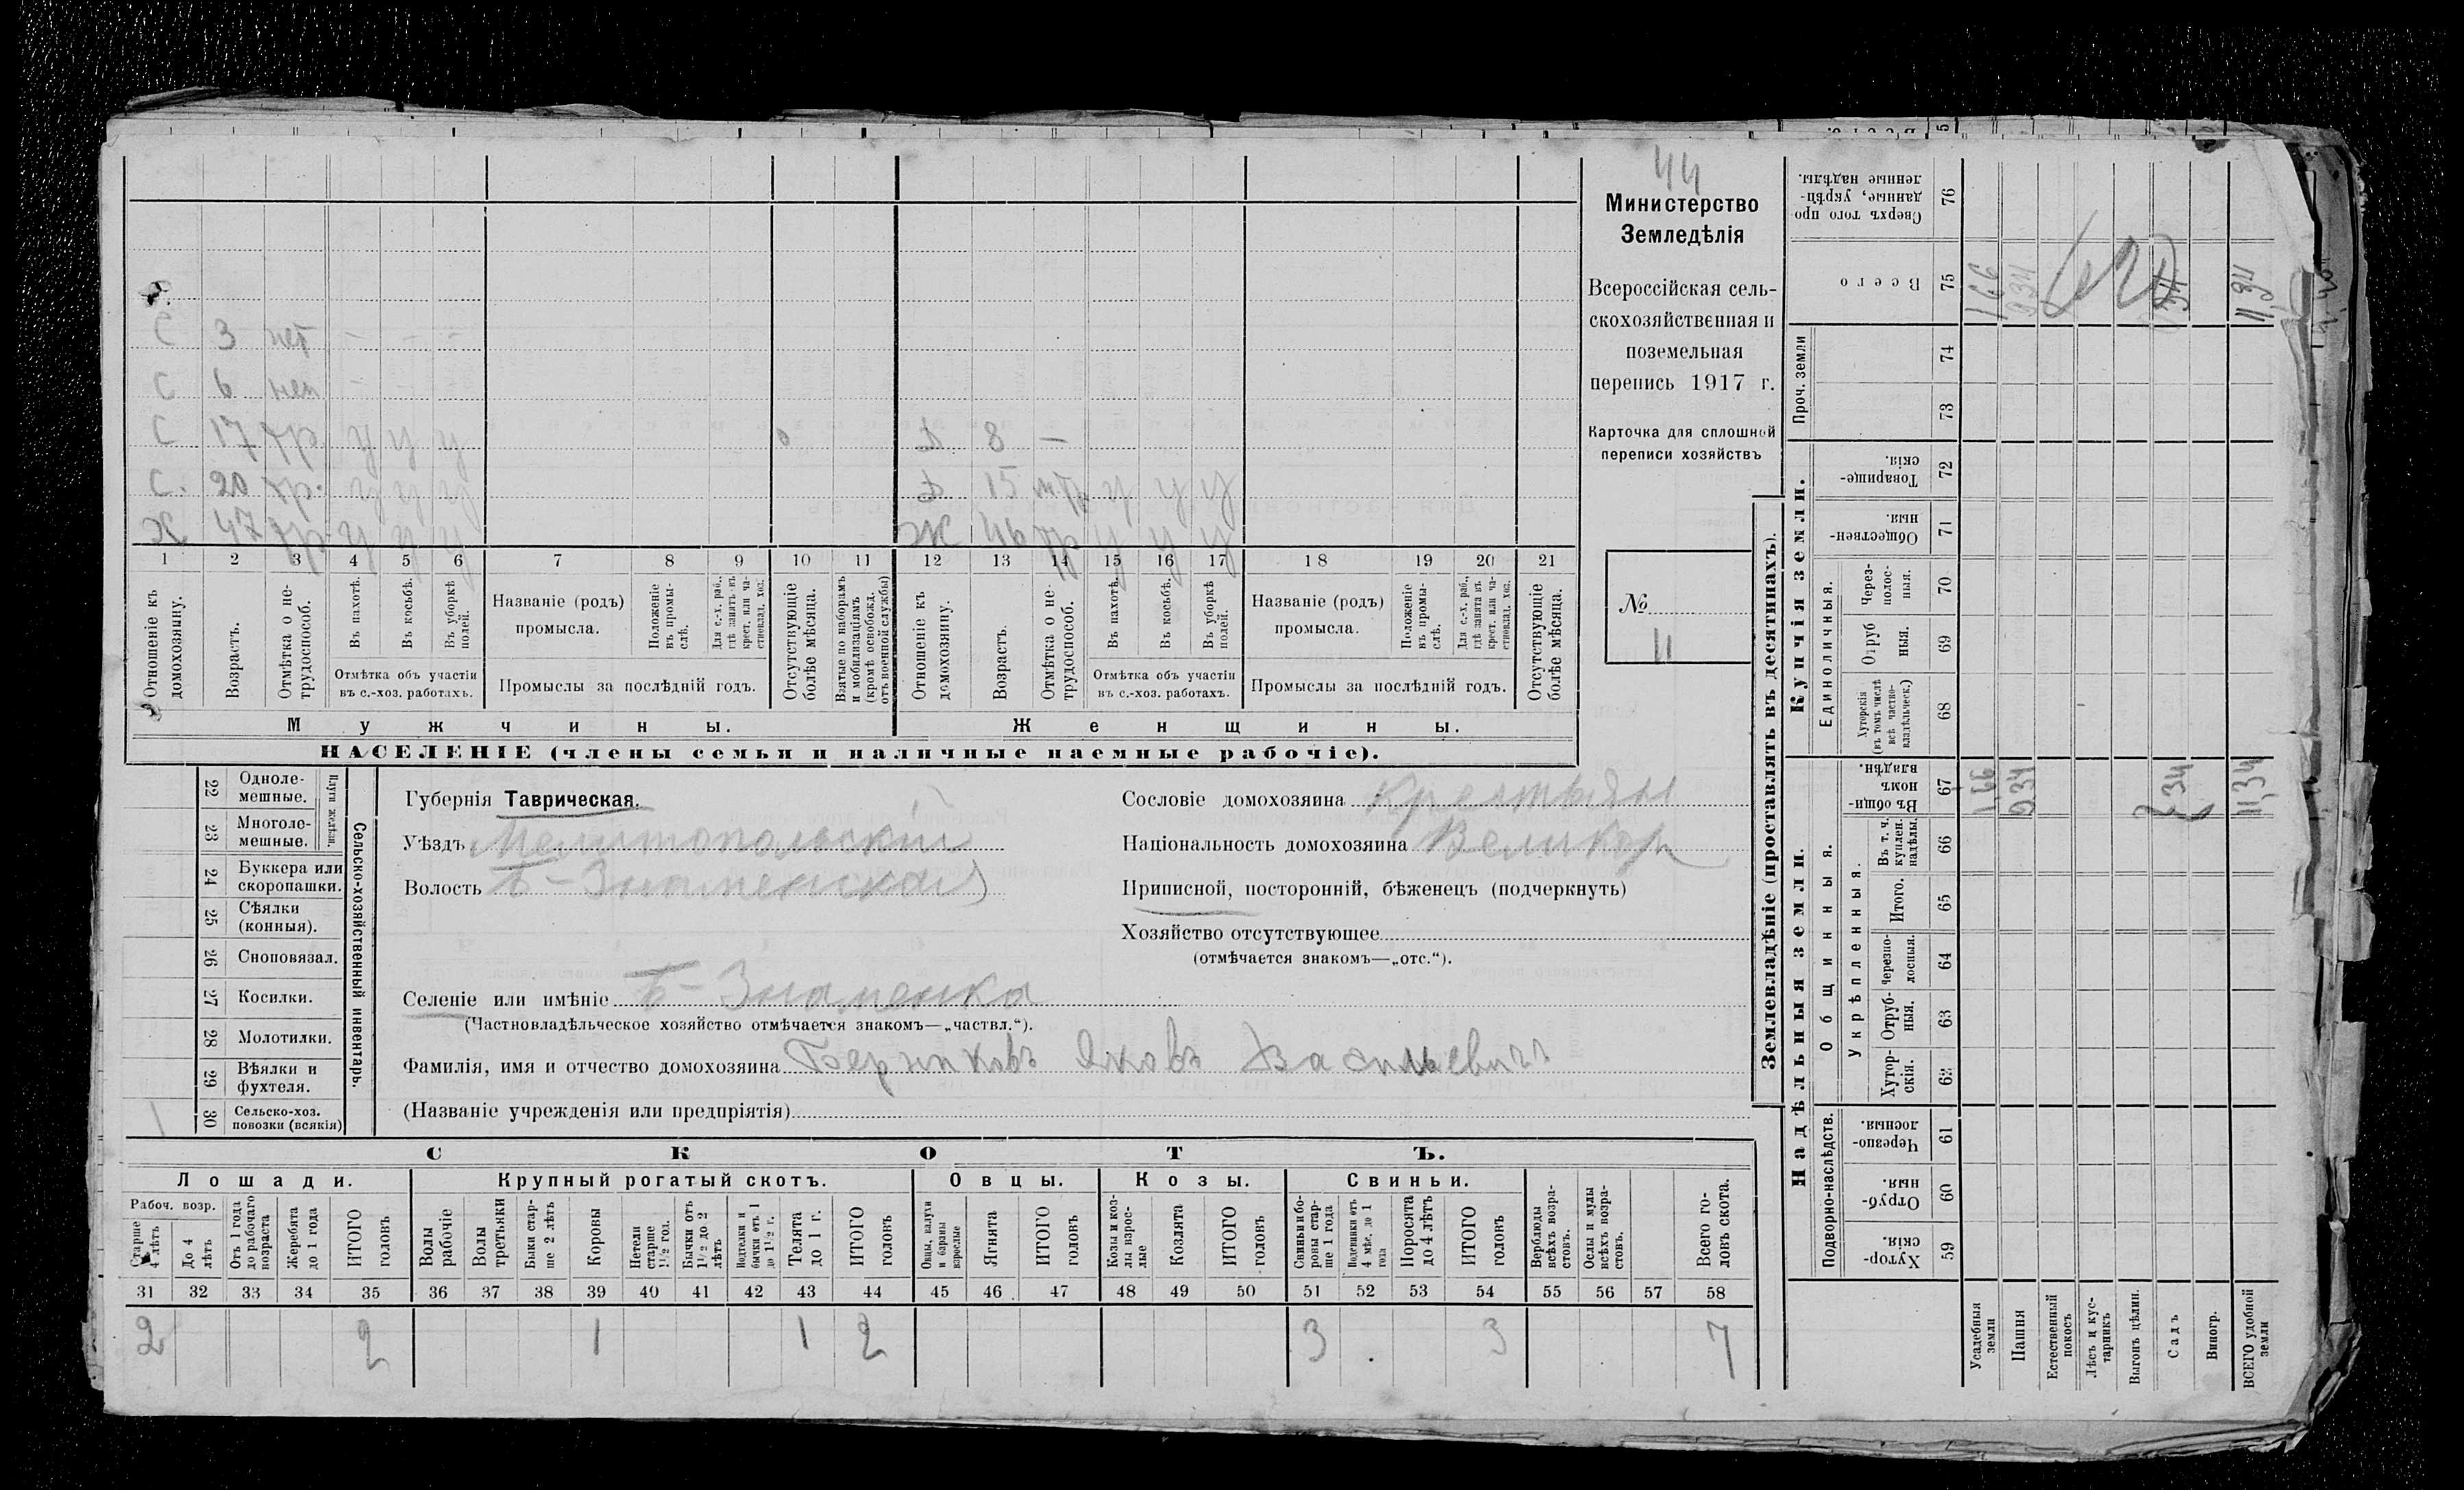 44
Министерство
Земледѣлія
Всероссійская сель-
скохозяйственная и
поземельная
перепись 1917 г.
Карточка для сплошной
переписи хозяйствъ
№
11
С 3 нет - - -
С 6 нет - - -
С 17 тр. у у у
Д 8 —
С. 20 тр. у у у
Д 15 у у у
Х 47 тр. у у у
Ж 46 тр у у у
1 2 3 4 5 6 7 8 9 10 11 12 13 14 15 16 17 18 19 20 21
Отношеніе къ домохозяину.
Возрастъ.
Отмѣтка о не-трудоспособ.
Въ пахотѣ.
Въ косьбѣ.
Въ уборкѣ полей.
Отмѣтка объ участіи
въ с.-хоз. работахъ.
Названіе (родъ)
промысла.
Положеніе въ промы-слѣ.
Для с.-х. раб., гдѣ занятъ въ крест. или ча-стновлад. хоз.
Промыслы за послѣдній годъ.
Отсутствующіе болѣе мѣсяца.
Взятые по наборамъ и мобилизаціямъ (кромѣ освобожд. отъ военной службы)
Отношеніе къ домохозяину.
Возрастъ.
Отмѣтка о не-трудоспособ.
Въ пахотѣ.
Въ косьбѣ.
Въ уборкѣ полей.
Отмѣтка объ участіи
въ с.-хоз. работахъ.
Названіе (родъ)
промысла.
Положеніе въ промы-слѣ.
Для с.-х. раб., гдѣ занята въ крест. или ча-стновлад. хоз.
Промыслы за послѣдній годъ.
Отсутствующіе болѣе мѣсяца.
Мужчины.
Женщины.
НАСЕЛЕНІЕ (члены семьи и наличные наемные рабочіе).
22 Одноле-мешные.
23 Многоле-мешные.
Плуги желѣзн.
24 Буккера или скоропашки.
25 Сѣялки (конныя).
26 Сноповязал.
27 Косилки.
28 Молотилки.
29 Вѣялки и фухтеля.
1 30 Сельско-хоз. повозки (всякія)
Сельско-хозяйственный инвентарь.
Губернія Таврическая.
Уѣздъ Мелитопольскій
Волость Б-Знаменская
Сословіе домохозяина Крестьян
Національность домохозяина Великор
Приписной, посторонній, бѣженецъ (подчеркнуть)
Хозяйство отсутствующее
(отмѣчается знакомъ—„отс.“).
Селеніе или имѣніе Б-Знаменка
(Частновладѣльческое хозяйство отмѣчается знакомъ—„частвл.“).
Фамилія, имя и отчество домохозяина Яковъ Васильевичъ
(Названіе учрежденія или предпріятія)
СКОТЪ.
Лошади. Крупный рогатый скотъ. Овцы. Козы. Свиньи.
Рабоч. возр.
Старше 4 лѣтъ
До 4 лѣтъ
Отъ 1 года до рабочаго возраста
Жеребята до 1 года
ИТОГО головъ
Волы рабочіе
Волы третьяки
Быки стар-ше 2 лѣтъ
Коровы
Нетели старше 1½ год.
Бычки отъ 1½ до 2 лѣтъ
Подтелки и бычки отъ 1 до 1½ г.
Телята до 1 г.
ИТОГО головъ
Овцы, валухи и бараны взрослые
Ягнята
ИТОГО головъ
Козы и коз-лы взрос-лые
Козлята
ИТОГО головъ
Свиньи и бо-ровы стар-ше 1 года
Подсвинки отъ 4 мѣс. до 1 года
Поросята до 4 лѣтъ
ИТОГО головъ
Верблюды всѣхъ возра-стовъ.
Ослы и мулы всѣхъ возра-стовъ.
Всего го-ловъ скота.
31 32 33 34 35 36 37 38 39 40 41 42 43 44 45 46 47 48 49 50 51 52 53 54 55 56 57 58
2 2 1 1 2 3 3 7
Землевладѣніе (проставлять въ десятинахъ).
Сверхъ того про-данные, укрѣп-ленные надѣлы. 76
Всего 75
1,66
11,34
Проч. земли
74
73
Купчія земли.
Товарище-скія. 72
Обществен-ныя. 71
Единоличныя.
Черезпо-лос-ныя. 70
Отруб-ныя. 69
Хуторскія (въ томъ числѣ всѣ частно-владѣльческ.) 68
Надѣльныя земли.
Общинныя.
Въ общи-номъ владѣн. 67
1,66
9,34
11,34
Укрѣпленныя.
Въ т. ч. куплен. надѣлы. 66
Итого. 65
Черезпо-лосныя. 64
Отруб-ныя. 63
Хутор-скія. 62
Подворно-наслѣдств.
Черезпо-лосныя. 61
Отруб-ныя. 60
Хутор-скія. 59
Усадебныя земли
Пашня
Естественный покосъ
Лѣсъ и кус-тарникъ
Выгонъ цѣлин.
Садъ
Виногр.
ВСЕГО удобной земли